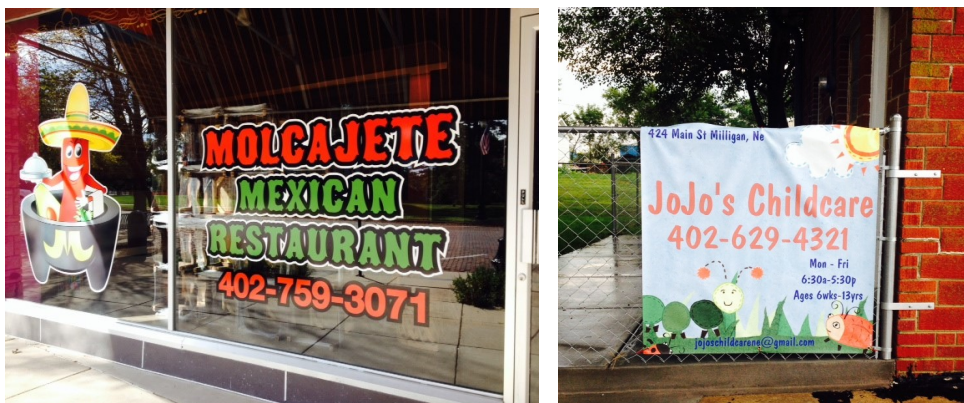 MOLCAJETE
MEXICAN
RESTAURANT
402-759-3071
424 Main St Milligan, Ne
JoJo's Childcare
402-629-4321
Mon - Fri
6:30a-5:30p
Ages 6wks-13yrs
jojoschildcarene@gmail.com